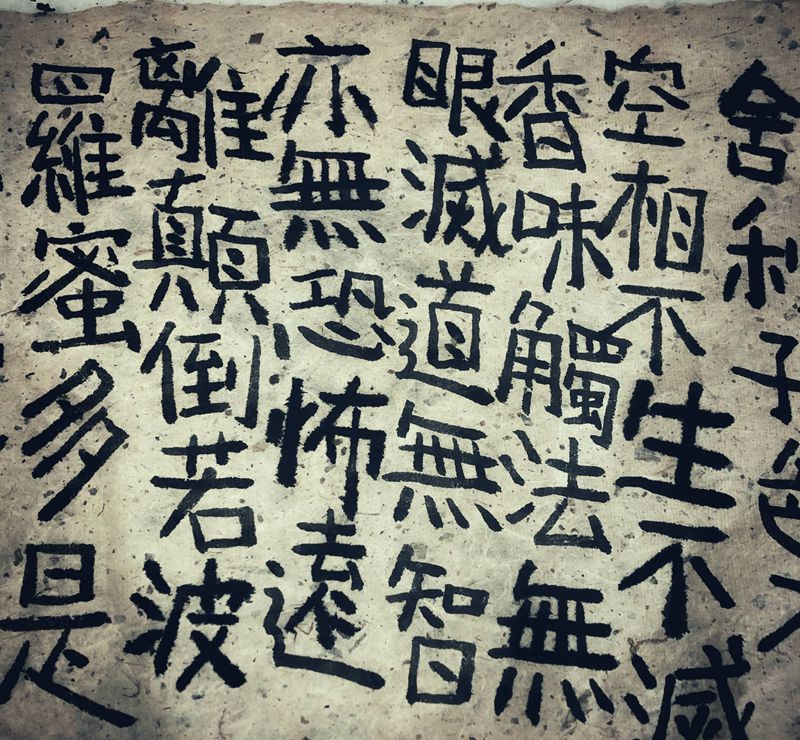 舍利子
空相不生不滅
香味觸法無
眼滅道無智
亦無恐怖遠
離顛倒若波
羅蜜多是